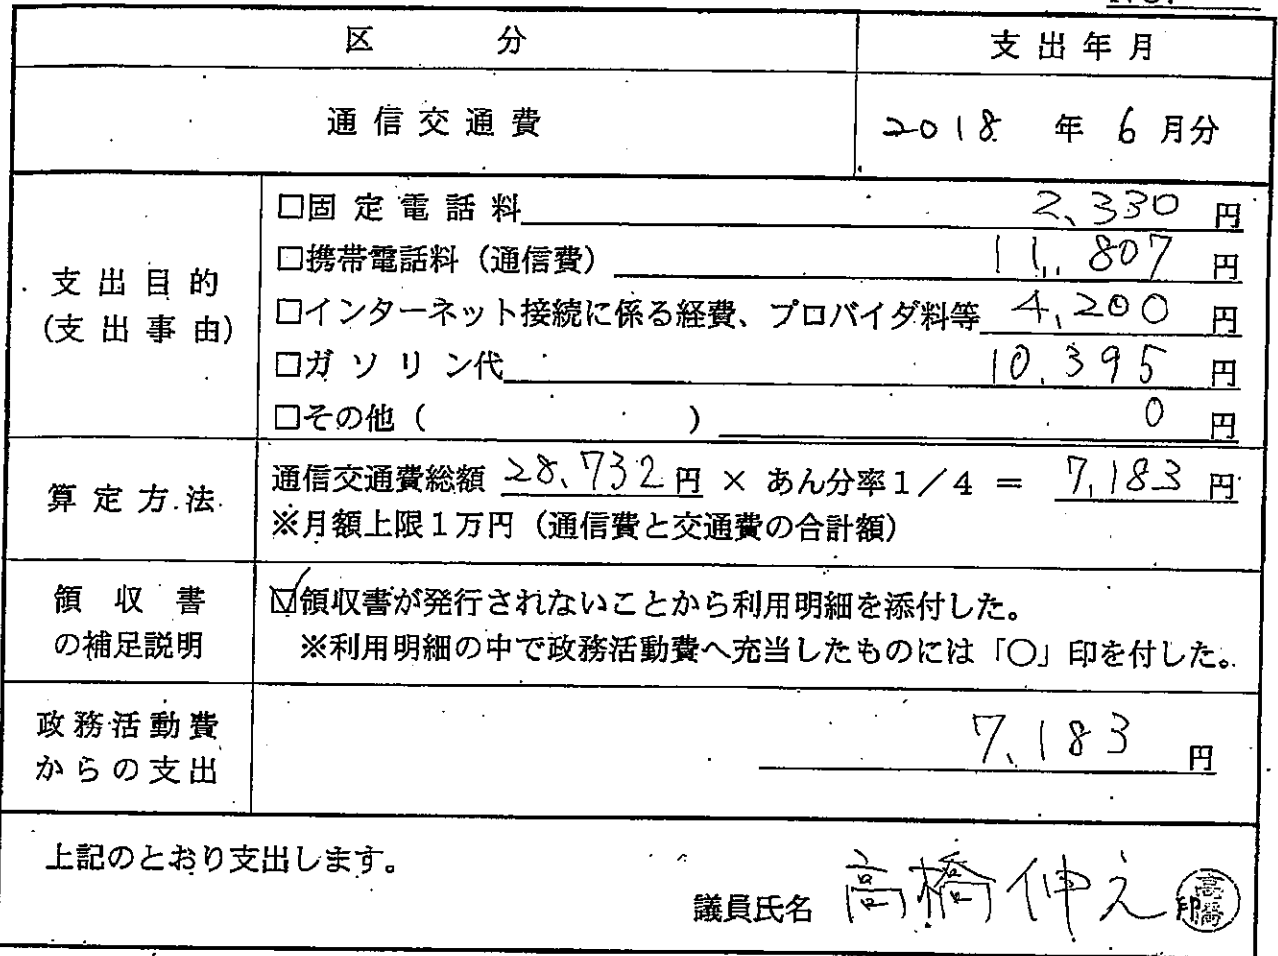 区 分 支出年月
通信交通費 2018 年 6 月分
支出目的
(支出事由)
□固定電話料 2,330 円
□携帯電話料（通信費） 11,807 円
□インターネット接続に係る経費、プロバイダ料等 4,200 円
□ガソリン代 10,395 円
□その他（ ） 0 円
算定方法
通信交通費総額 28,732円 × あん分率1／4 ＝ 7,183 円
※月額上限１万円（通信費と交通費の合計額）
領収書
の補足説明
☑領収書が発行されないことから利用明細を添付した。
※利用明細の中で政務活動費へ充当したものには「○」印を付した。
政務活動費
からの支出
7,183 円
上記のとおり支出します。
議員氏名 高橋伸 印